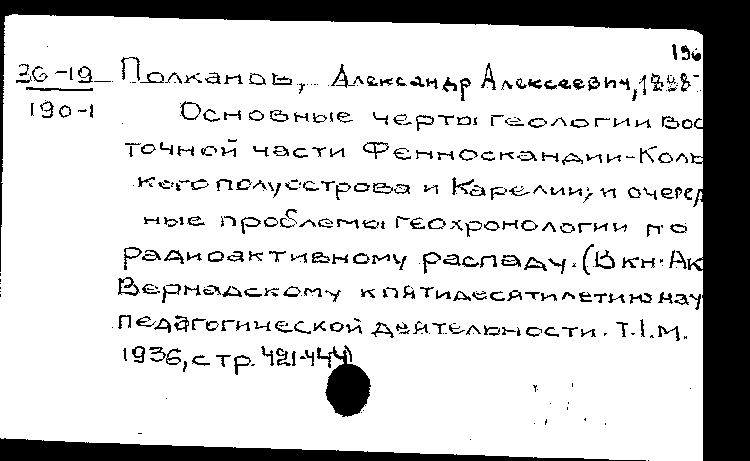 196
36-19 Полканов, Александр Алексеевич, 1888-
190-1 Основные черты геологии вос
точной части Фенноскандии-Коль
кого полуострова и Карелии; и очеред
ные проблемы геохронологии по
радиоактивному распаду. (В кн. Ак
Вернадскому к пятидесятилетию нау
педагогической деятельности. Т.I.М.
1936, стр. 421-444)